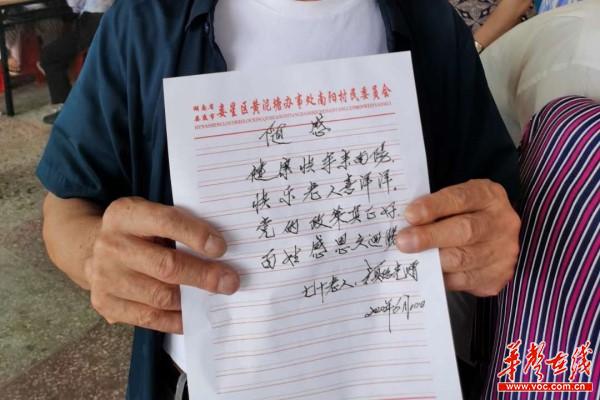 湖南省
娄底市 娄星区黄泥塘办事处南阳村民委员会
随感
健康快车来南阳,
快乐老人喜洋洋.
党的政策真正好
百姓感恩
七十老人:
华声在线
www.voc.com.cn